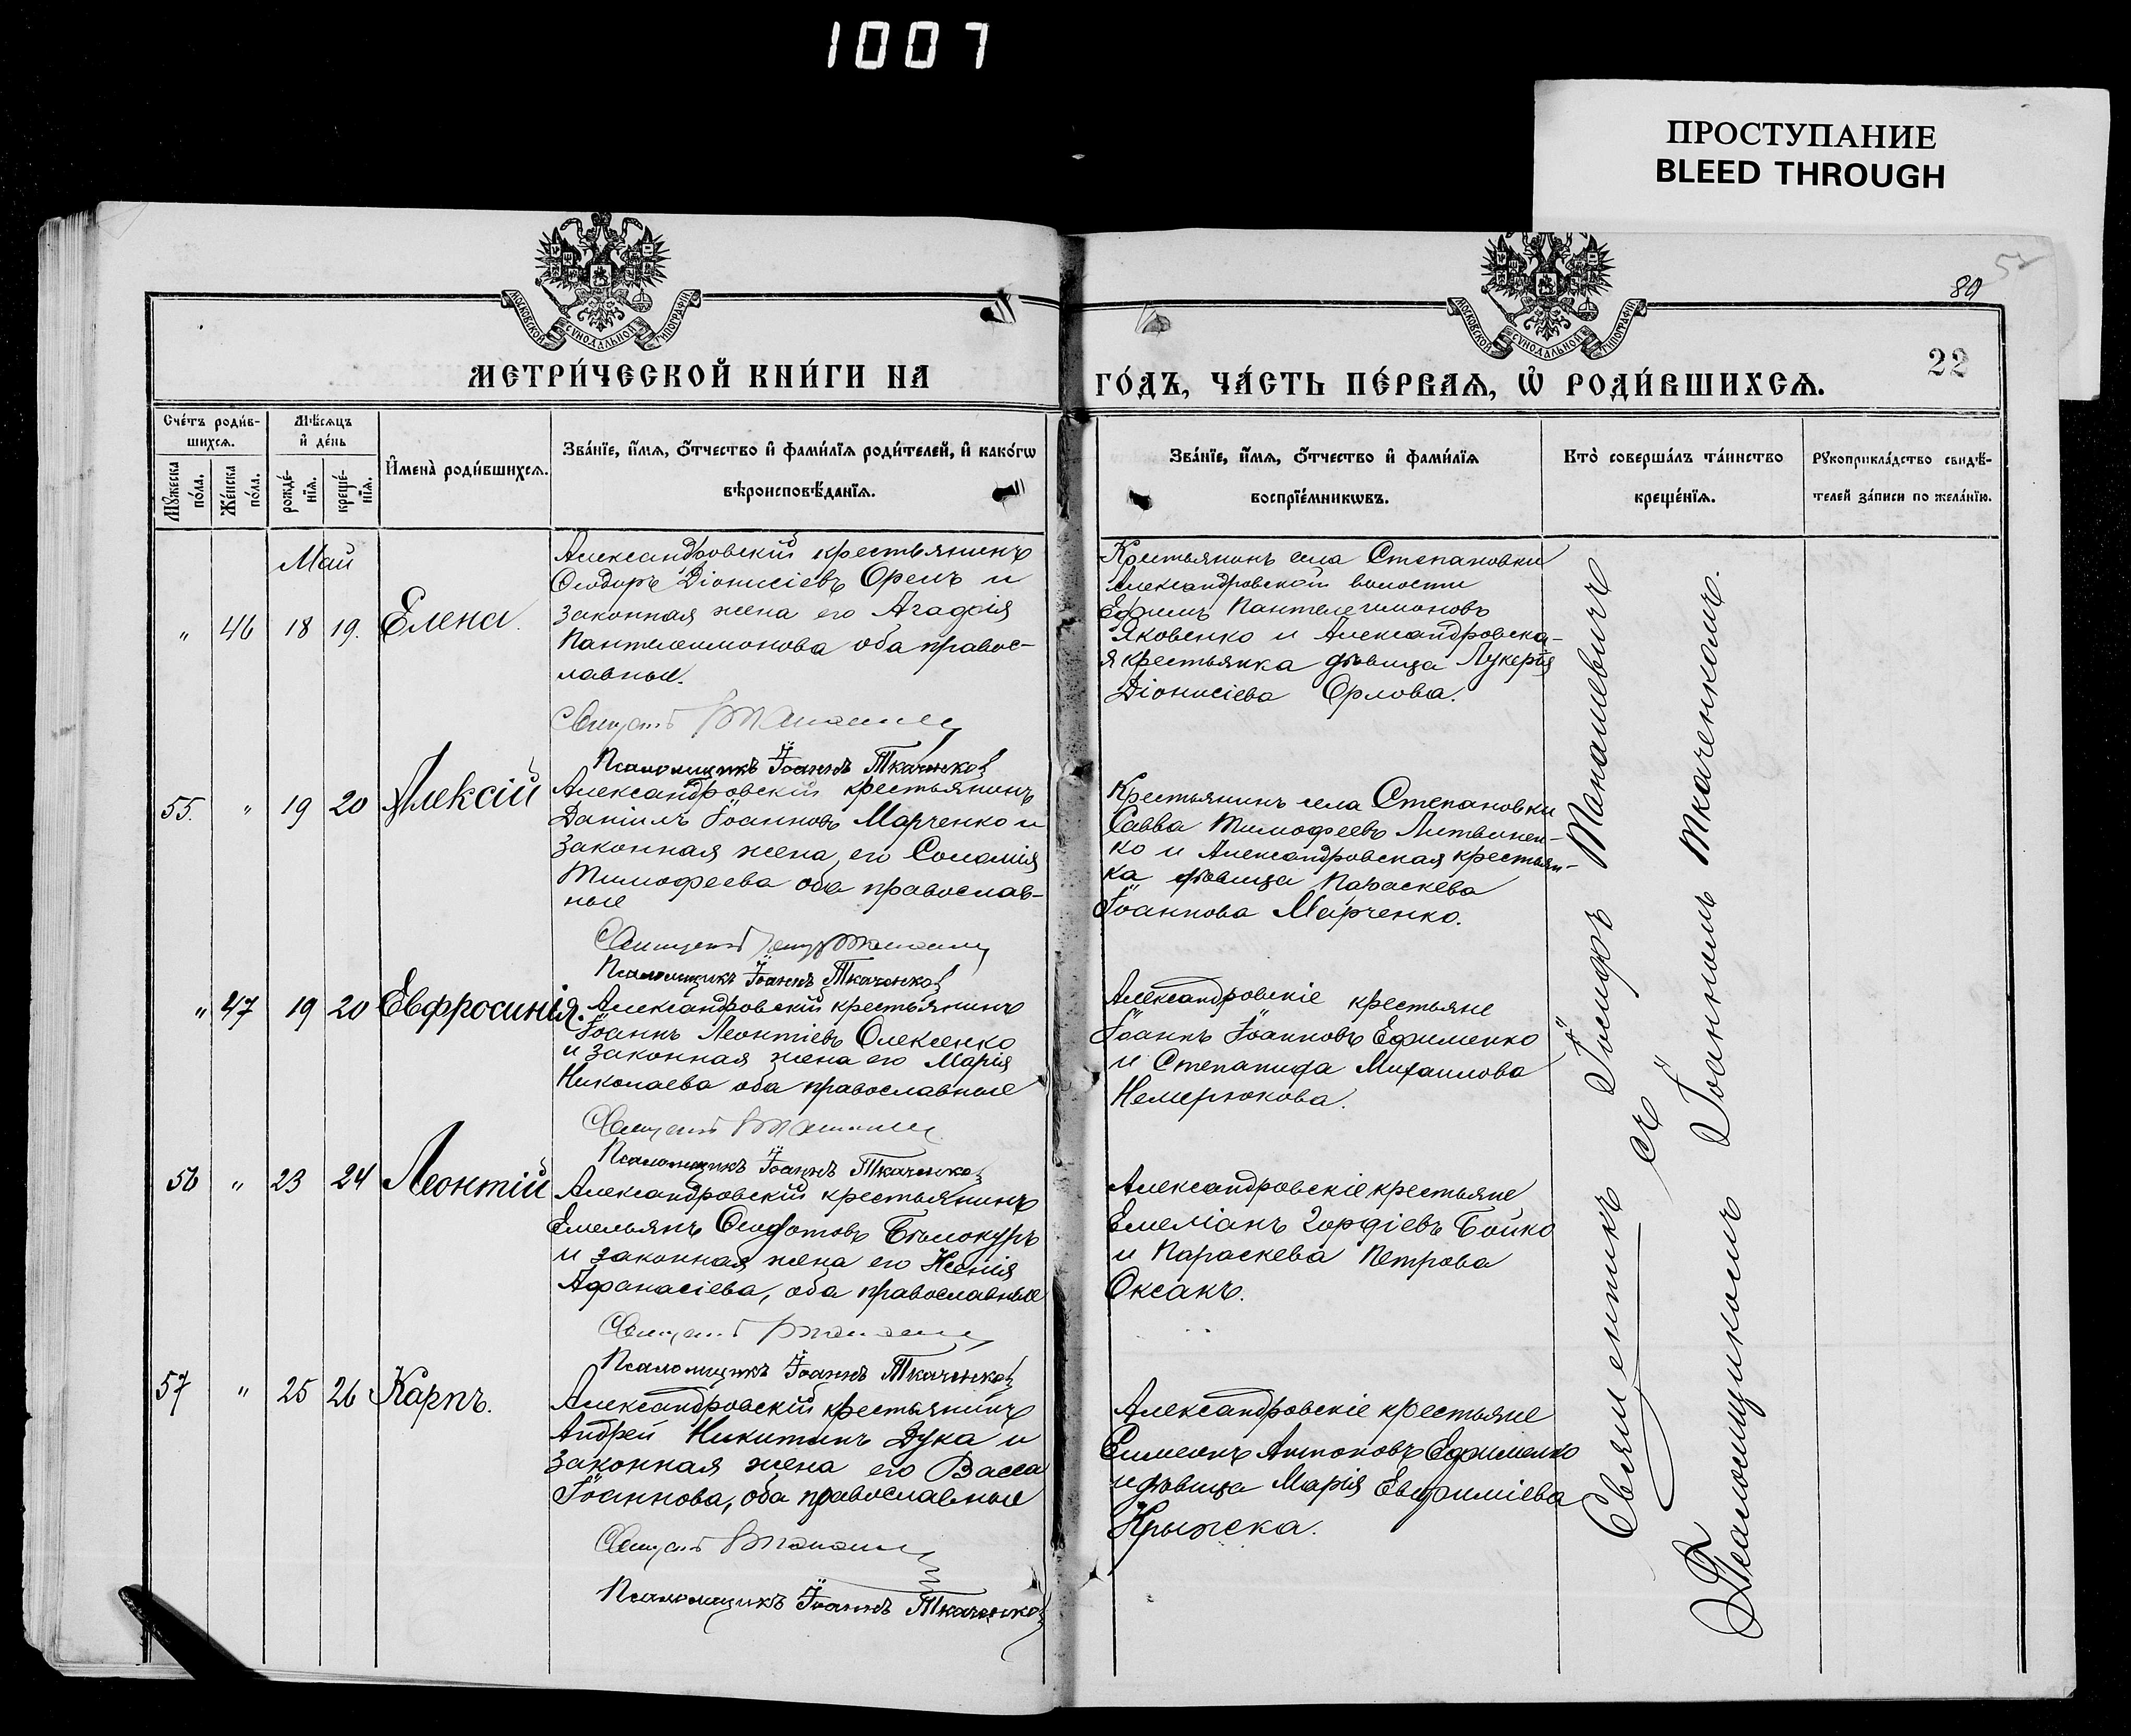 1007
ПРОСТУПАНИЕ
BLEED THROUGH
МОСКОВСКОЙ СѴНОДАЛЬНОЙ ТИПОГРАФІИ
МОСКОВСКОЙ СѴНОДАЛЬНОЙ ТИПОГРАФІИ
80
22
МЕТРИ́ЧЕСКОЙ КНИ́ГИ НА
ГО́ДЪ, ЧА́СТЬ ПЕ́РВАѦ, Ѡ҆ РОДИ́ВШИХСѦ.
Сче́тъ роди́в-
шихсѧ.
Мѣ́сѧцъ
и҆ де́нь
Мꙋ́жеска
по́ла.
Же́нска
по́ла.
рожде́-
нїѧ.
креще́-
нїѧ.
И҆мена̀ роди́вшихсѧ.
Зва́нїе, и҆́мѧ, ѻ҆́тчество и҆ фами́лїѧ роди́телей, и҆ како́гѡ
вѣроисповѣ́данїѧ.
Зва́нїе, и҆́мѧ, ѻ҆́тчество и҆ фами́лїѧ
воспрїе́мникѡвъ.
Кто̀ соверша́лъ та́инство
креще́нїѧ.
Рꙋкоприкла́дство свидѣ́-
телей за́писи по жела́нїю.
Май
" 46 18 19. Елена.
Александровскій крестьянинъ
Ѳеодоръ Діонисіевъ Орелъ и
законная жена его Агафія
Пантелеимонова оба правос-
лавные.
Псаломщикъ Іоаннъ Ткаченко
Крестьянинъ села Степановки
Александровской волости
Ефимъ Пантелеимоновъ
Яковенко и Александровска-
я крестьянка дѣвица Лукерія
Діонисіева Орлова.
55. " 19 20 Алексій
Александровскій крестьянинъ
Даніилъ Іоанновъ Марченко и
законная жена его Соломія
Тимофеева оба православ-
ные
Псаломщикъ Іоаннъ Ткаченко
Крестьянинъ села Степановки
Савва Тимофеевъ Литвинен-
ко и Александровская крестьян-
ка дѣвица Параскева
Іоаннова Марченко.
" 47 19 20 Евфросинія.
Александровскій крестьянинъ
Іоаннъ Леонтіевъ Олексенко
и законная жена его Марія
Николаева оба православные
Псаломщикъ Іоаннъ Ткаченко
Александровскіе крестьяне
Іоаннъ Іоанновъ Ефименко
и Степанида Михаилова
Немерюкова.
56 " 23 24 Леонтій
Александровскій крестьянинъ
Емельянъ Ѳеодотовъ Бѣлокуръ
и законная жена его Ксенія
Афанасіева, оба православные
Псаломщикъ Іоаннъ Ткаченко
Александровскіе крестьяне
Емеліанъ Гордіевъ Бойко
и Параскева Петрова
Оксакъ.
57 " 25 26 Карпъ.
Александровскій крестьянинъ
Андрей Никитинъ Дука и
законная жена его Васса
Іоаннова, оба православные
Псаломщикъ Іоаннъ Ткаченко
Александровскіе крестьяне
Симеонъ Антоновъ Ефименко
и дѣвица Марія Евфиміева
Крыжска.
Священникъ Іосифъ Манашевичъ
съ
Псаломщикомъ Іоанномъ Ткаченкомъ.